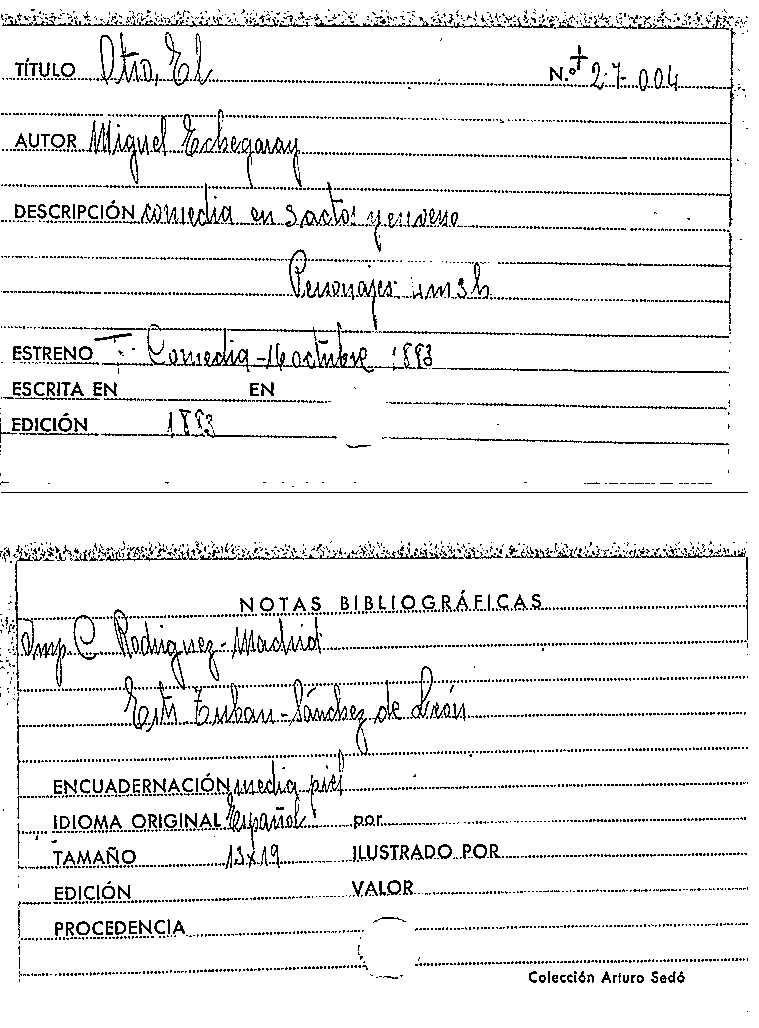 TÍTULO Otro, El N.º + 27-004
AUTOR Miguel Echegaray
DESCRIPCIÓN comedia en 3 actos y en verso
Personajes 4m 3h
ESTRENO T. Comedia - 16 octubre 1883
ESCRITA EN EN
EDICIÓN 1883
NOTAS BIBLIOGRÁFICAS
Imp C Rodriguez - Madrid
Estr Tubau - Sánchez de León
ENCUADERNACIÓN media piel
IDIOMA ORIGINAL Español por
TAMAÑO 13x19 ILUSTRADO POR
EDICIÓN VALOR
PROCEDENCIA
Colección Arturo Sedó